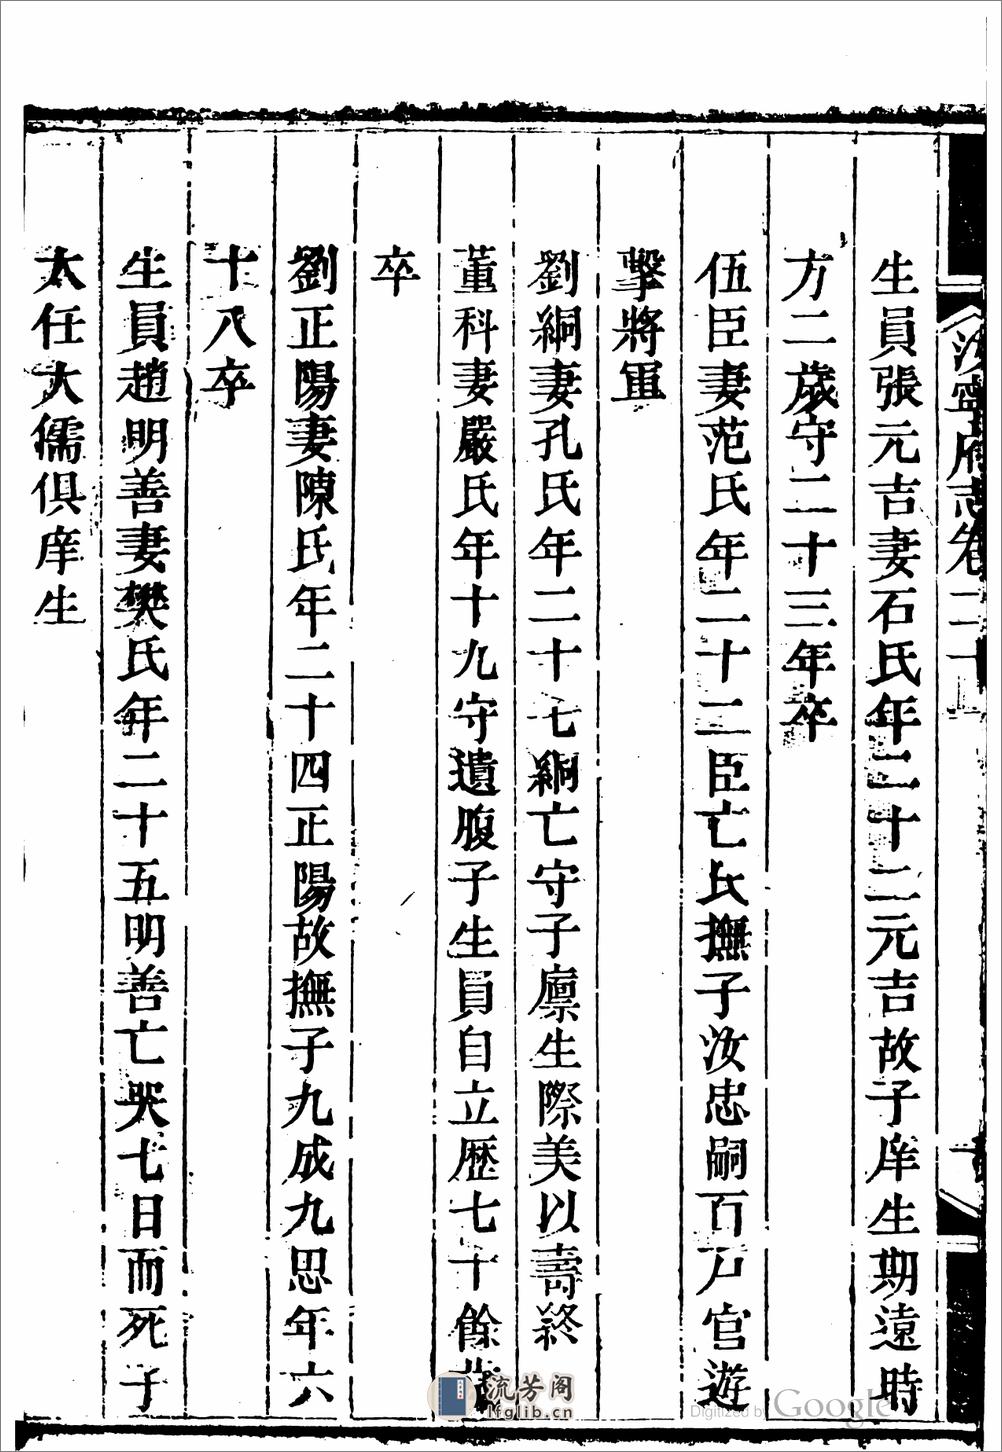 汝寧府志卷二十
生員張元吉妻石氏年二十二元吉故子庠生期遠時
方二歲守二十三年卒
伍臣妻范氏年二十二臣亡氏撫子汝忠嗣百戶官遊
擊將軍
劉絅妻孔氏年二十七絅亡守子廩生際美以壽終
董科妻嚴氏年十九守遺腹子生員自立歷七十餘歲
卒
劉正陽妻陳氏年二十四正陽故撫子九成九思年六
十八卒
生員趙明善妻樊氏年二十五明善亡哭七日而死子
大任大儒俱庠生
流芳阁
lfglib.cn
Digitized by Google